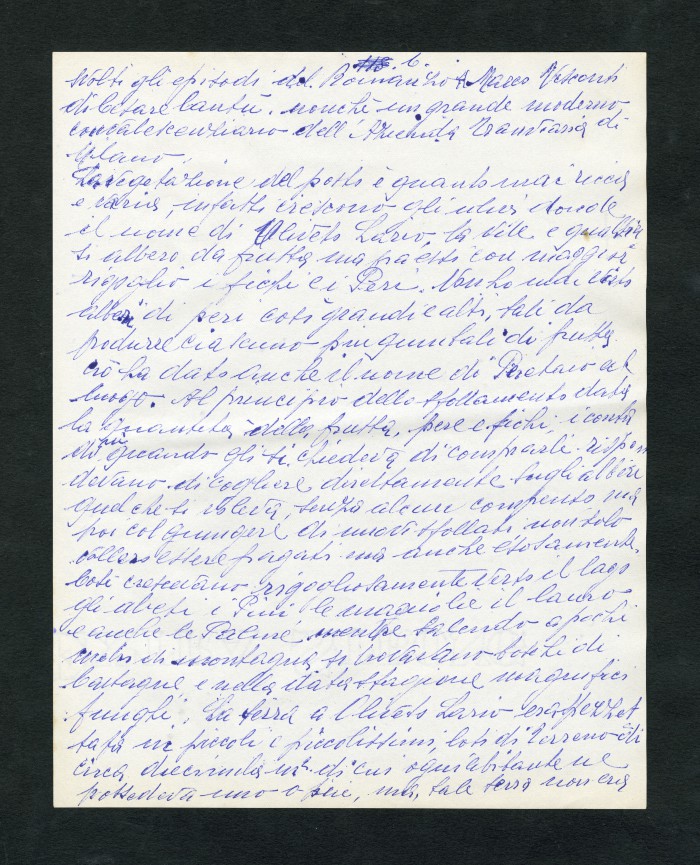 6.
svolti gli episodi del Romanzo Marco Visconti
di Cesare Cantù. nonchè un grande moderno
convalescenziario dell'Azienda Tranviaria di
Milano.
La vegetazione del posto è quanto mai ricca
e varia, infatti crescono gli ulivi donde
il nome di Oliveto Lario, la vite e
ti albero da frutta ma precisi con maggior
rigoglio i fichi e i Peri. Non ho mai visto
alberi di peri così grandi e alti, tali da
produrre ciascuno più quintali di frutta
ciò ha dato anche il nome di al
luogo. Al principio dello sfollamento data
la quantità della frutta, pere e fichi, i conta
dini quando gli si chiedeva di comprarli rispon
devano di cogliere direttamente sugli alberi
quel che si voleva, senza alcun compenso ma
poi col giungere di nuovi sfollati non solo
vollero essere pagati ma anche esosamente.
Così crescevano rigogliosamente verso il lago
gli abeti i Pini le magnolie il lauro
e anche le Palme mentre salendo a pochi
metri di montagna si trovavano boschi di
Castagne e nella data stagione magnifici
funghi. La terra a Oliveto Lario era spezzet
tata in piccoli e piccolissimi, loti di terreno di
circa diecimila m². di cui ogni abitante ne
possedeva uno o più, ma, tale terra non era